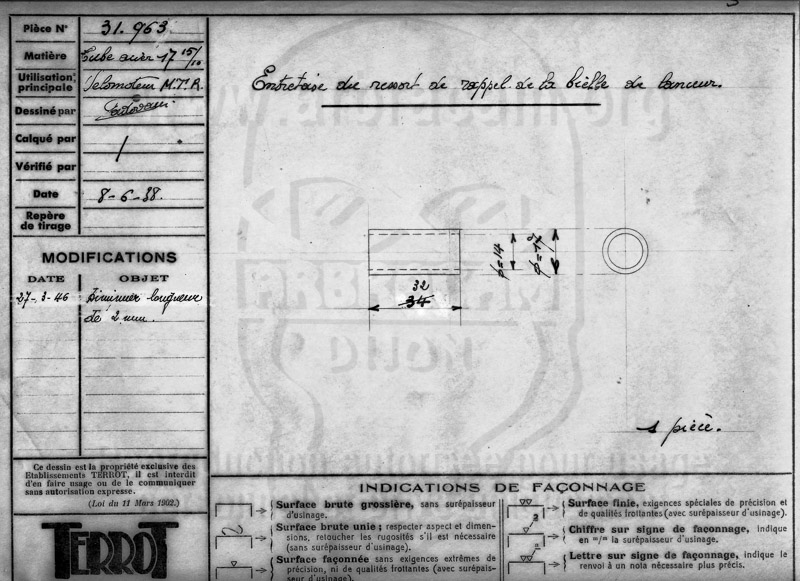 Pièce N° 31.963
Matière Tube acier 17 15/10
Utilisation principale Velomoteur M.T.R.
Dessiné par
Calqué par
Vérifié par
Date 8-6-38.
Repère de tirage
MODIFICATIONS
DATE OBJET
27-3-46 Diminuer longueur
de 2 mm.
Ce dessin est la propriété exclusive des
Etablissements TERROT, il est interdit
d'en faire usage ou de le communiquer
sans autorisation expresse.
(Loi du 11 Mars 1902.)
TERROT
Entretoise du ressort de rappel de la bielle de lanceur.
www.
.org
DIJON
ø=14
ø=17
32
34
1 pièce.
INDICATIONS DE FAÇONNAGE
Surface brute grossière, sans surépaisseur
d'usinage.
Surface brute unie; respecter aspect et dimen-
sions, retoucher les rugosités s'il est nécessaire
(sans surépaisseur d'usinage).
Surface façonnée sans exigences extrêmes de
précision, ni de qualités frottantes (avec surépais-
seur d'usinage).
Surface finie, exigences spéciales de précision et
de qualités frottantes (avec surépaisseur d'usinage).
3
Chiffre sur signe de façonnage, indique
en m/m la surépaisseur d'usinage.
a
Lettre sur signe de façonnage, indique le
renvoi à un nota nécessaire plus précis.